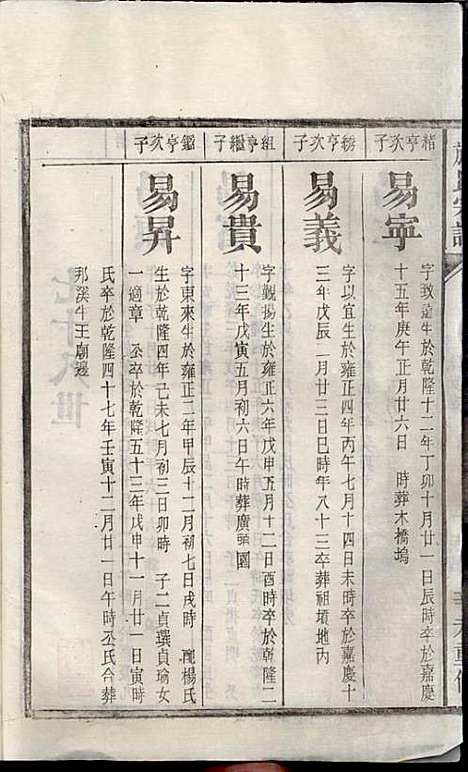 緒亨次子
易寧
字致遠生於乾隆十二年丁卯十月廿一日辰時卒於嘉慶
十五年庚午正月廿六日　時葬木橋塢
綉亨次子
易義
字以宜生於雍正四年丙午七月十四日未時卒於嘉慶十
三年戊辰一月廿三日巳時年八十三卒葬祖墳地內
組亨繼子
易貴
字觀揚生於雍正六年戊申五月十二日酉時卒於乾隆二
十三年戊寅五月初六日午時葬廣頭園
鑑亨次子
易昇
字東來生於雍正二年甲辰十二月初七日戌時　配楊氏
生於乾隆四年己未七月初三日卯時　子二貞瑻貞瑜女
一適章　公卒於乾隆五十三年戊申十一月廿一日寅時
氏卒於乾隆四十七年壬寅十二月廿一日午時公氏合葬
邦溪牛王廟邊